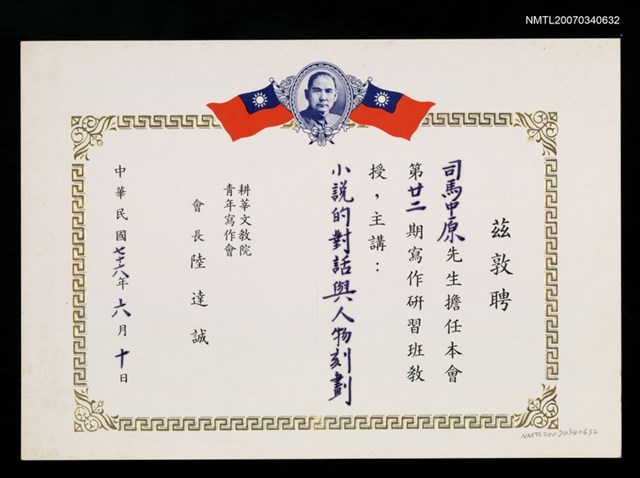 NMTL20070340632
茲敦聘
司馬中原先生擔任本會
第廿二期寫作研習班教
授，主講：
小說的對話與人物刻劃
耕莘文教院
青年寫作會
會長陸達誠
中華民國七十六年六月十日
NMTL20070340632